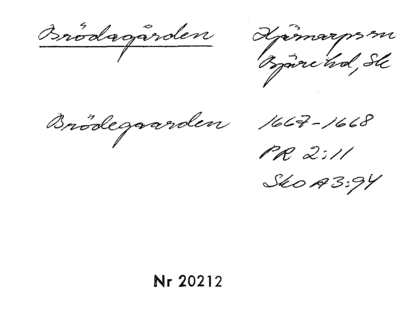 Brödagården Hjärnarps sn
Bjäre hd, Sk
Brödegaarden 1667-1668
PR 2:11
Sko A3:94
Nr 20212